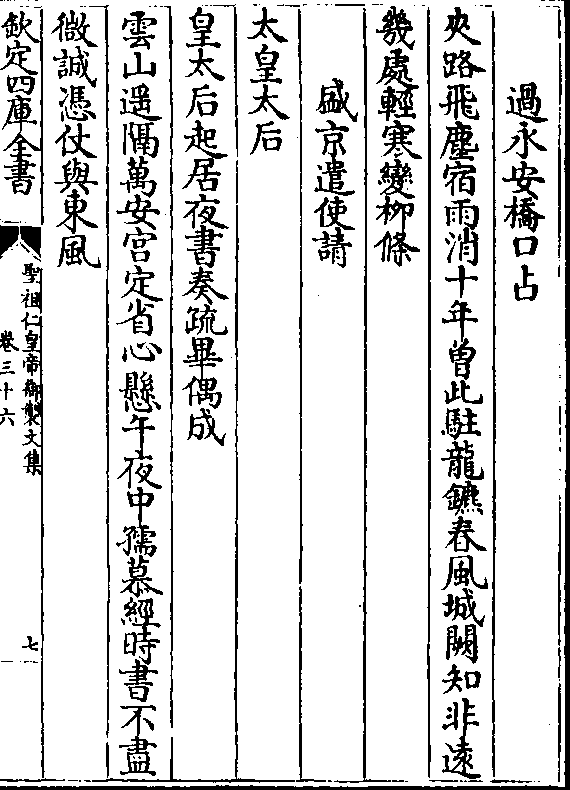 過永安橋口占
夾路飛塵宿雨消十年曽此駐龍鑣春風城闕知非遠
幾處輕寒變柳條
盛京遣使請
太皇太后
皇太后起居夜書奏疏畢偶成
雲山遥隔萬安宫定省心懸午夜中孺慕經時書不盡
微誠憑仗與東風
欽定四庫全書
聖祖仁皇帝御製文集
卷三十六
七